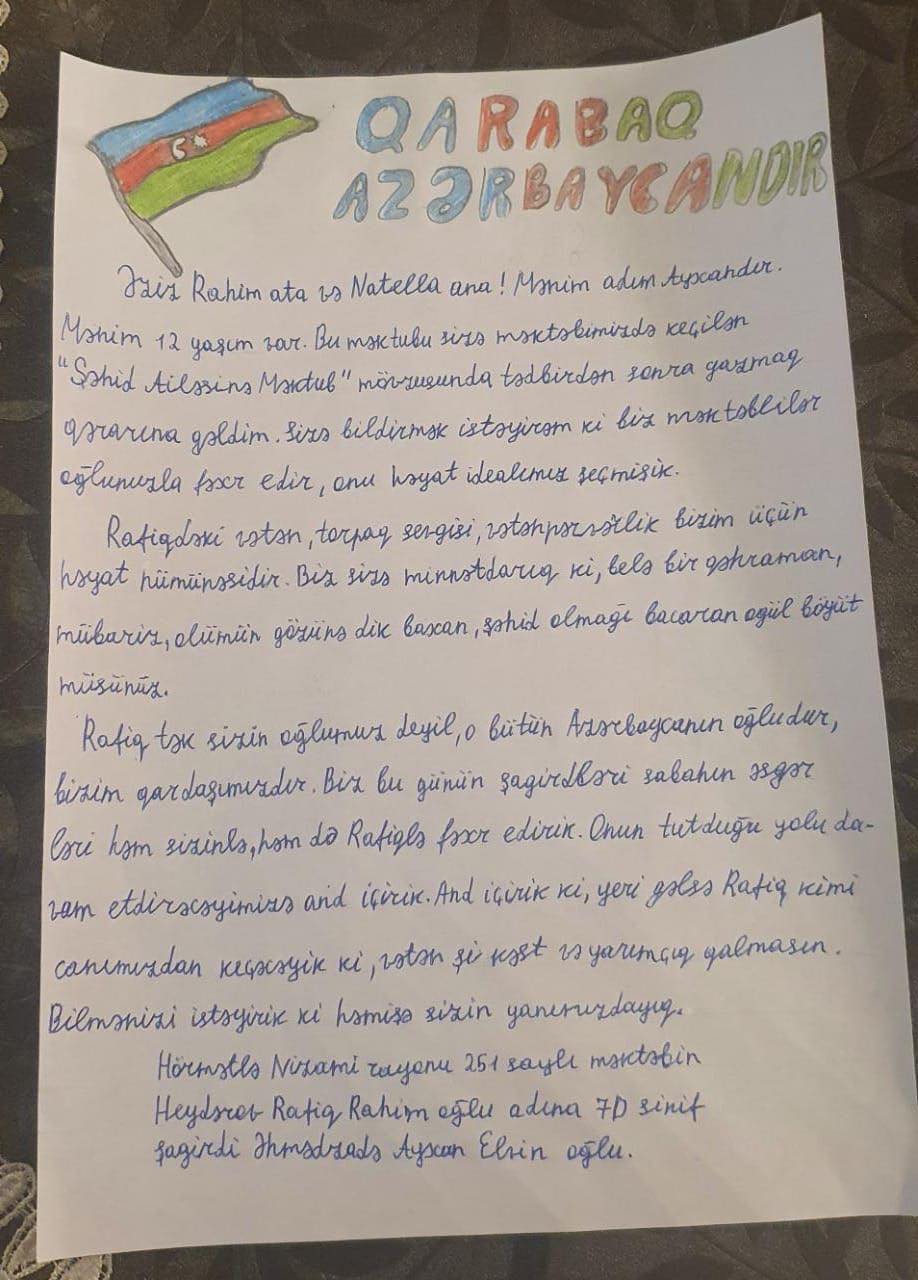 QARABAQ
AZƏRBAYCANDIR
Əziz Rahim ata və Natella ana! Mənim adım Ayxandır.
Mənim 12 yaşım var. Bu məktubu sizə məktəbimizdə keçilən
"Şəhid Ailəsinə Məktub" mövzusunda tədbirdən sonra yazmaq
qərarına gəldim. Sizə bildirmək istəyirəm ki biz məktəblilər
oğlunuzla fəxr edir, onu həyat idealımız seçmişik.
Rafiqdəki vətən, torpaq sevgisi, vətənpərvərlik bizim üçün
həyat nümünəsidir. Biz sizə minnətdarıq ki, belə bir qəhraman,
mübariz, ölümün gözünə dik baxan, şəhid olmağı bacaran oğul böyüt
müsünüz.
Rafiq tək sizin oğlumuz deyil, o bütün Azərbaycanın oğludur,
bizim qardaşımızdır. Biz bu günün şagirdləri sabahın əsgər
ləri həm sizinlə, həm də Rafiqlə fəxr edirik. Onun tutduğu yolu da-
vam etdirəcəyimizə and içirik. And içirik ki, yeri gəlsə Rafiq kimi
canımızdan keçəcəyik ki, vətən şi kəst və yarımçıq qalmasın.
Bilmənizi istəyirik ki həmişə sizin yanınızdayıq.
Hörmətlə Nizami rayonu 251 saylı məktəbin
Heydərov Rafiq Rahim oğlu adına 7D sinif
şagirdi Əhmədzadə Ayxan Elvin oğlu.